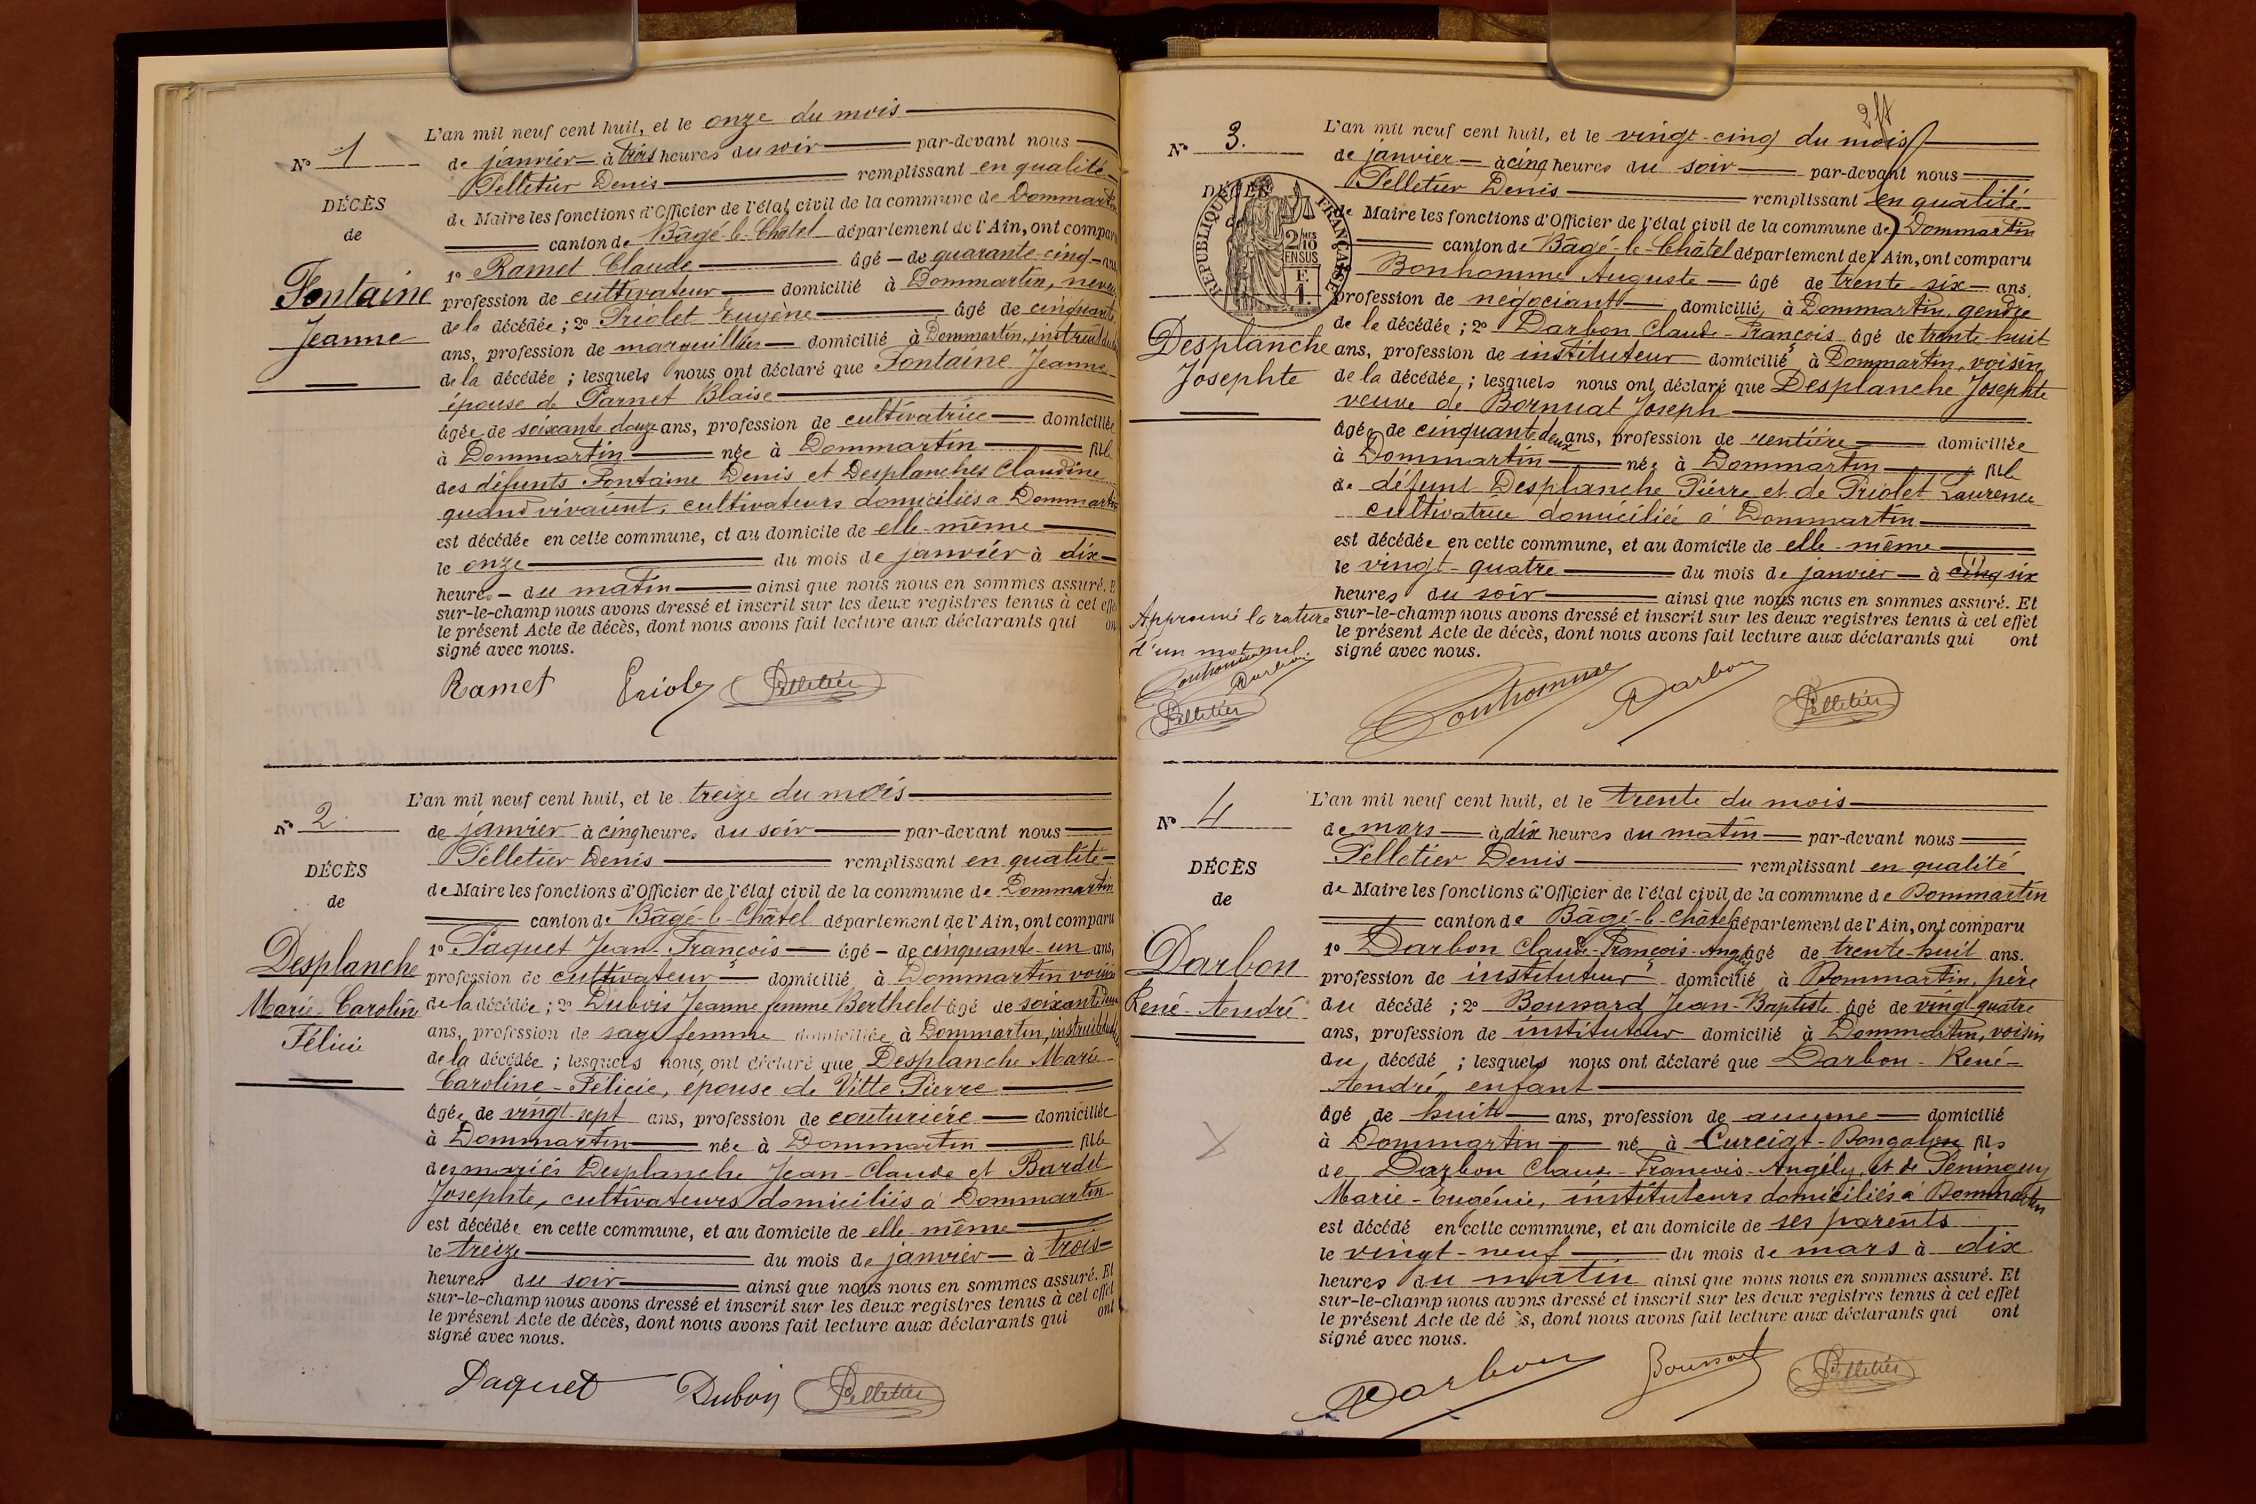 L'an mil neuf cent huit, et le onze du mois
N° 1
de janvier à trois heures du soir par-devant nous
Pelletier Denis remplissant en qualité
DÉCÈS
de Maire les fonctions d'Officier de l'état civil de la commune de Dommartin
de
canton de Bâgé-le-Châtel département de l'Ain, ont comparu
1° Ramet Claude âgé de quarante-cinq ans,
Fontaine
profession de cultivateur domicilié à Dommartin, neveu
Jeanne
de la décédée ; 2° Priolet Eugène âgé de cinquante
ans, profession de marguillier domicilié à Dommartin,
de la décédée ; lesquels nous ont déclaré que Fontaine Jeanne
épouse de Parnet Blaise
âgée de soixante douze ans, profession de cultivatrice domiciliée
à Dommartin née à Dommartin fille
des défunts Fontaine Denis et Desplanches Claudine
quand vivaient, cultivateurs domiciliés à Dommartin
est décédée en cette commune, et au domicile de elle-même
le onze du mois de janvier à dix
heures du matin ainsi que nous nous en sommes assuré. Et
sur-le-champ nous avons dressé et inscrit sur les deux registres tenus à cet effet
le présent Acte de décès, dont nous avons fait lecture aux déclarants qui ont
signé avec nous.
Ramet Priolet Pelletier
L'an mil neuf cent huit, et le treize du mois
N° 2
de janvier à cinq heures du soir par-devant nous
Pelletier Denis remplissant en qualité
DÉCÈS
de Maire les fonctions d'Officier de l'état civil de la commune de Dommartin
de
canton de Bâgé-le-Châtel département de l'Ain, ont comparu
1° Paquet Jean-François âgé de cinquante-un ans,
Desplanche
profession de cultivateur domicilié à Dommartin voisin
Marie-Caroline
de la décédée ; 2° Dubois Jeanne femme Berthelet âgé de soixante deux
Félicie
ans, profession de sage femme domiciliée à Dommartin,
de la décédée ; lesquels nous ont déclaré que Desplanche Marie-
Caroline-Félicie, épouse de Vitte Pierre
âgée de vingt-sept ans, profession de couturière domiciliée
à Dommartin née à Dommartin fille
des mariés Desplanche Jean-Claude et Bardet
Josephte, cultivateurs domiciliés à Dommartin
est décédée en cette commune, et au domicile de elle-même
le treize du mois de janvier à trois
heures du soir ainsi que nous nous en sommes assuré. Et
sur-le-champ nous avons dressé et inscrit sur les deux registres tenus à cet effet
le présent Acte de décès, dont nous avons fait lecture aux déclarants qui ont
signé avec nous.
Paquet Dubois Pelletier
L'an mil neuf cent huit, et le vingt-cinq du mois
N° 3.
de janvier à cinq heures du soir par-devant nous
Pelletier Denis remplissant en qualité
DÉCÈS
RÉPUBLIQUE FRANÇAISE
2/10 EN SUS
F.
1.
de Maire les fonctions d'Officier de l'état civil de la commune de Dommartin
canton de Bâgé-le-Châtel département de l'Ain, ont comparu
Bonhomme Auguste âgé de trente-six ans.
profession de négociant domicilié à Dommartin, gendre
de la décédée ; 2° Darbon Claude-François âgé de trente-huit
Desplanche
ans, profession de instituteur domicilié à Dommartin, voisin
Josephte
de la décédée ; lesquels nous ont déclaré que Desplanche Josephte
veuve de Bornuat Joseph
âgée de cinquante deux ans, profession de rentière domiciliée
à Dommartin née à Dommartin fille
de défunt Desplanche Pierre et de Priolet Laurence
cultivatrice domiciliée à Dommartin
est décédée en cette commune, et au domicile de elle-même
le vingt-quatre du mois de janvier à cinq six
heures du soir ainsi que nous nous en sommes assuré. Et
Approuvé la rature
sur-le-champ nous avons dressé et inscrit sur les deux registres tenus à cet effet
le présent Acte de décès, dont nous avons fait lecture aux déclarants qui ont
d'un mot nul.
signé avec nous.
Bonhomme Darbon
Pelletier
Bonhomme Darbon Pelletier
L'an mil neuf cent huit, et le trente du mois
N° 4
de mars à dix heures du matin par-devant nous
Pelletier Denis remplissant en qualité
DÉCÈS
de Maire les fonctions d'Officier de l'état civil de la commune de Dommartin
de
canton de Bâgé-le-Châtel département de l'Ain, ont comparu
1° Darbon Claude-François-Angély âgé de trente-huit ans.
Darbon
profession de instituteur domicilié à Dommartin, père
René-André
du décédé ; 2° Boussard Jean-Baptiste âgé de vingt-quatre
ans, profession de instituteur domicilié à Dommartin, voisin
du décédé ; lesquels nous ont déclaré que Darbon-René-
André, enfant
âgé de huit ans, profession de aucune domicilié
à Dommartin né à Curciat-Dongalon fils
de Darbon Claude-François-Angély et de Peninguy
Marie-Eugénie, instituteurs domiciliés à Dommartin
est décédé en cette commune, et au domicile de ses parents
le vingt-neuf du mois de mars à dix
heures du matin ainsi que nous nous en sommes assuré. Et
sur-le-champ nous avons dressé et inscrit sur les deux registres tenus à cet effet
le présent Acte de décès, dont nous avons fait lecture aux déclarants qui ont
signé avec nous.
Darbon Boussard Pelletier